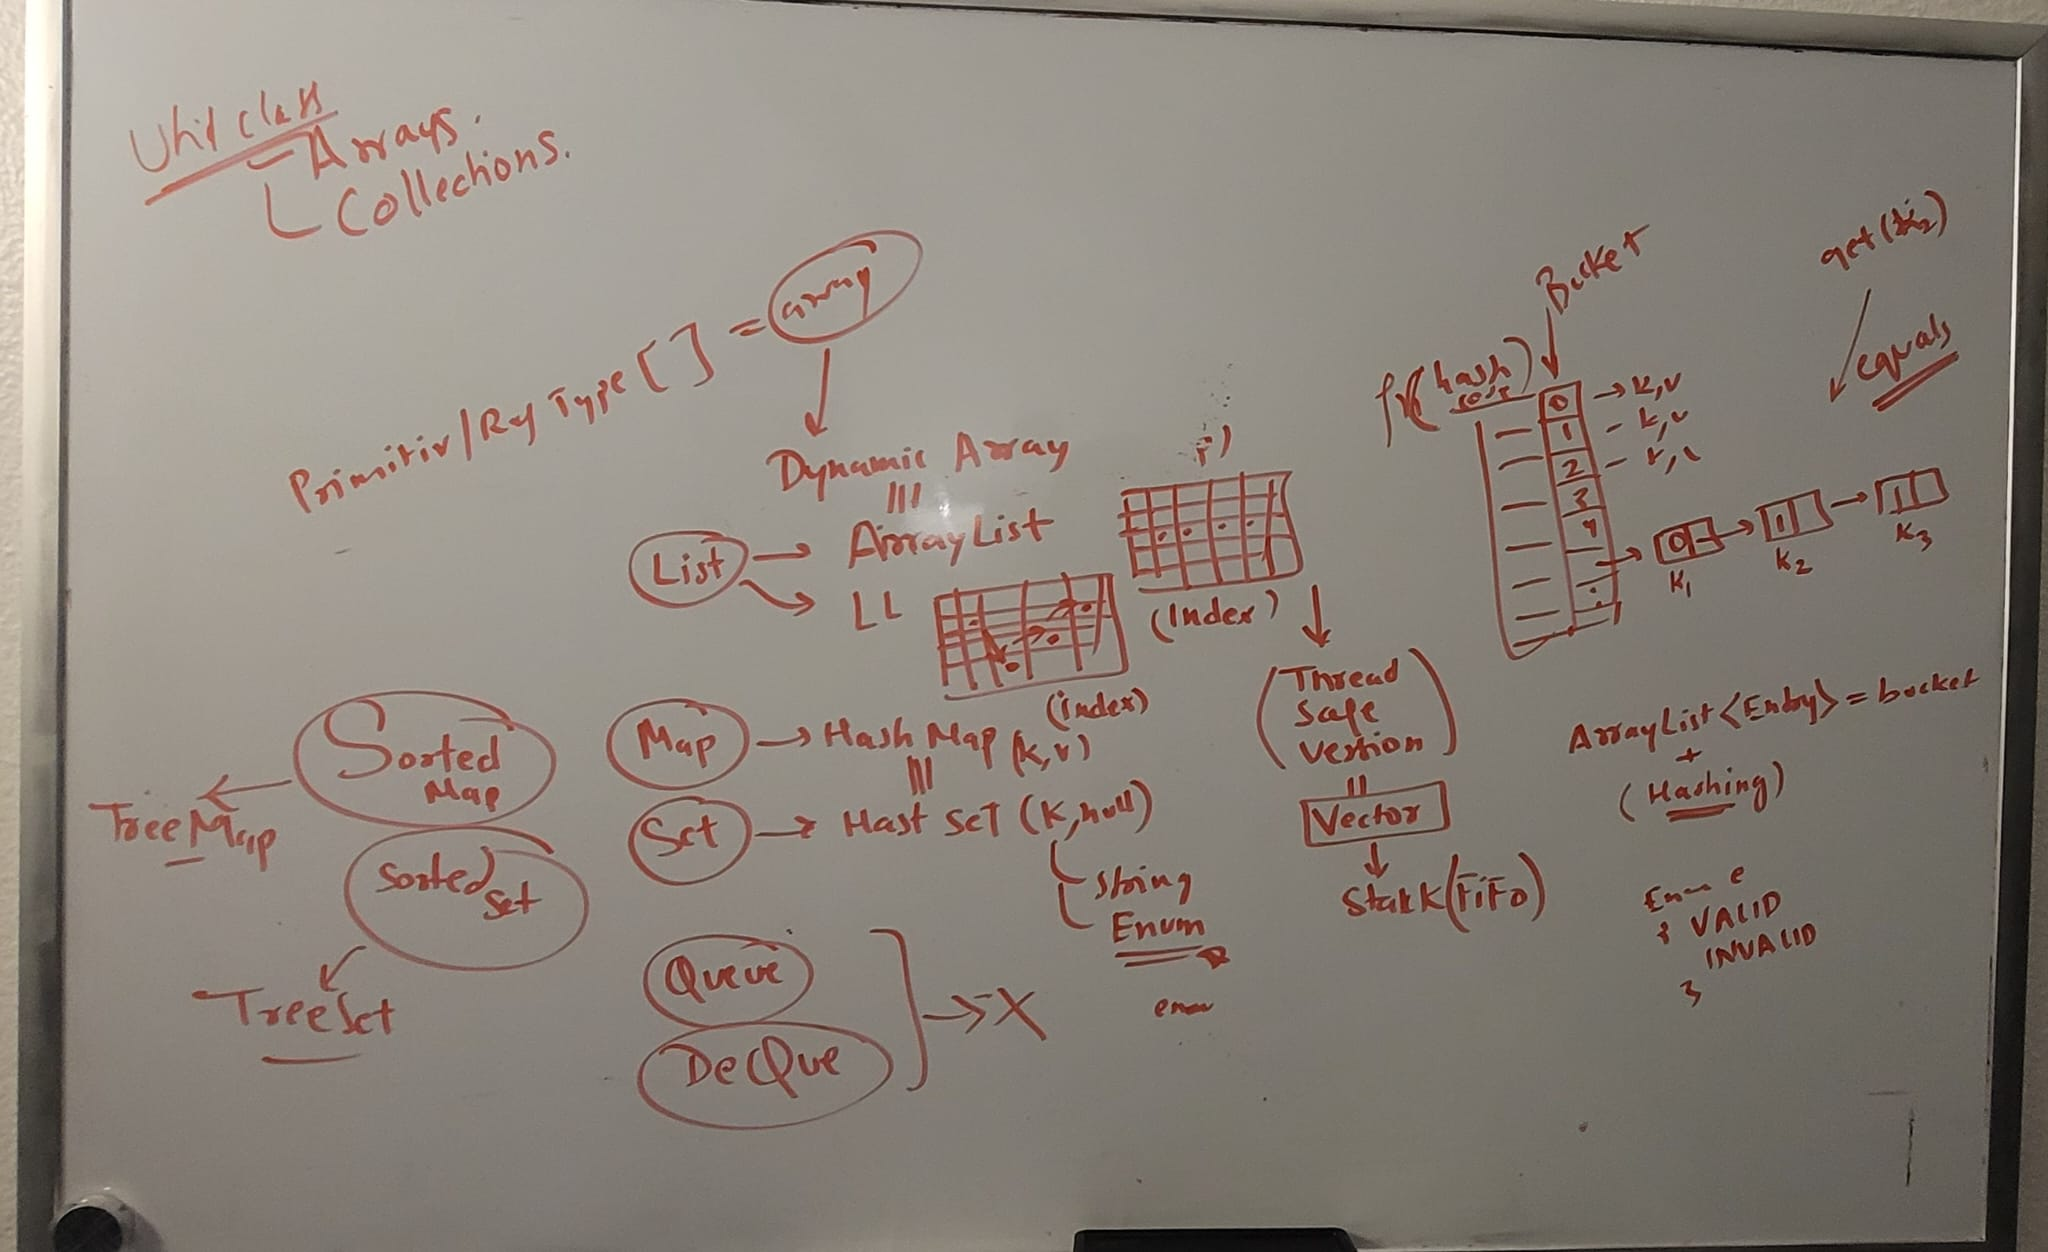 Util class
Arrays.
Collections.
Primitiv/Ref Type [ ] = array
Dynamic Array
List → ArrayList
→ LL
(Index)
(index)
Map → Hash Map (k,v)
Set → Hast set (k, null)
String
Enum
Sorted
Map
TreeMap
Sorted
Set
TreeSet
Queue
DeQue
→ X
(Thread
Safe
Version)
Vector
Stakk (FiFo)
Bucket
(hash
code)
0 → k,v
1 - k,v
2
3
4
K1
K2
K3
equals
ArrayList <Entry> = bucket
+
(Hashing)
Enum e
{ VALID
INVALID
}